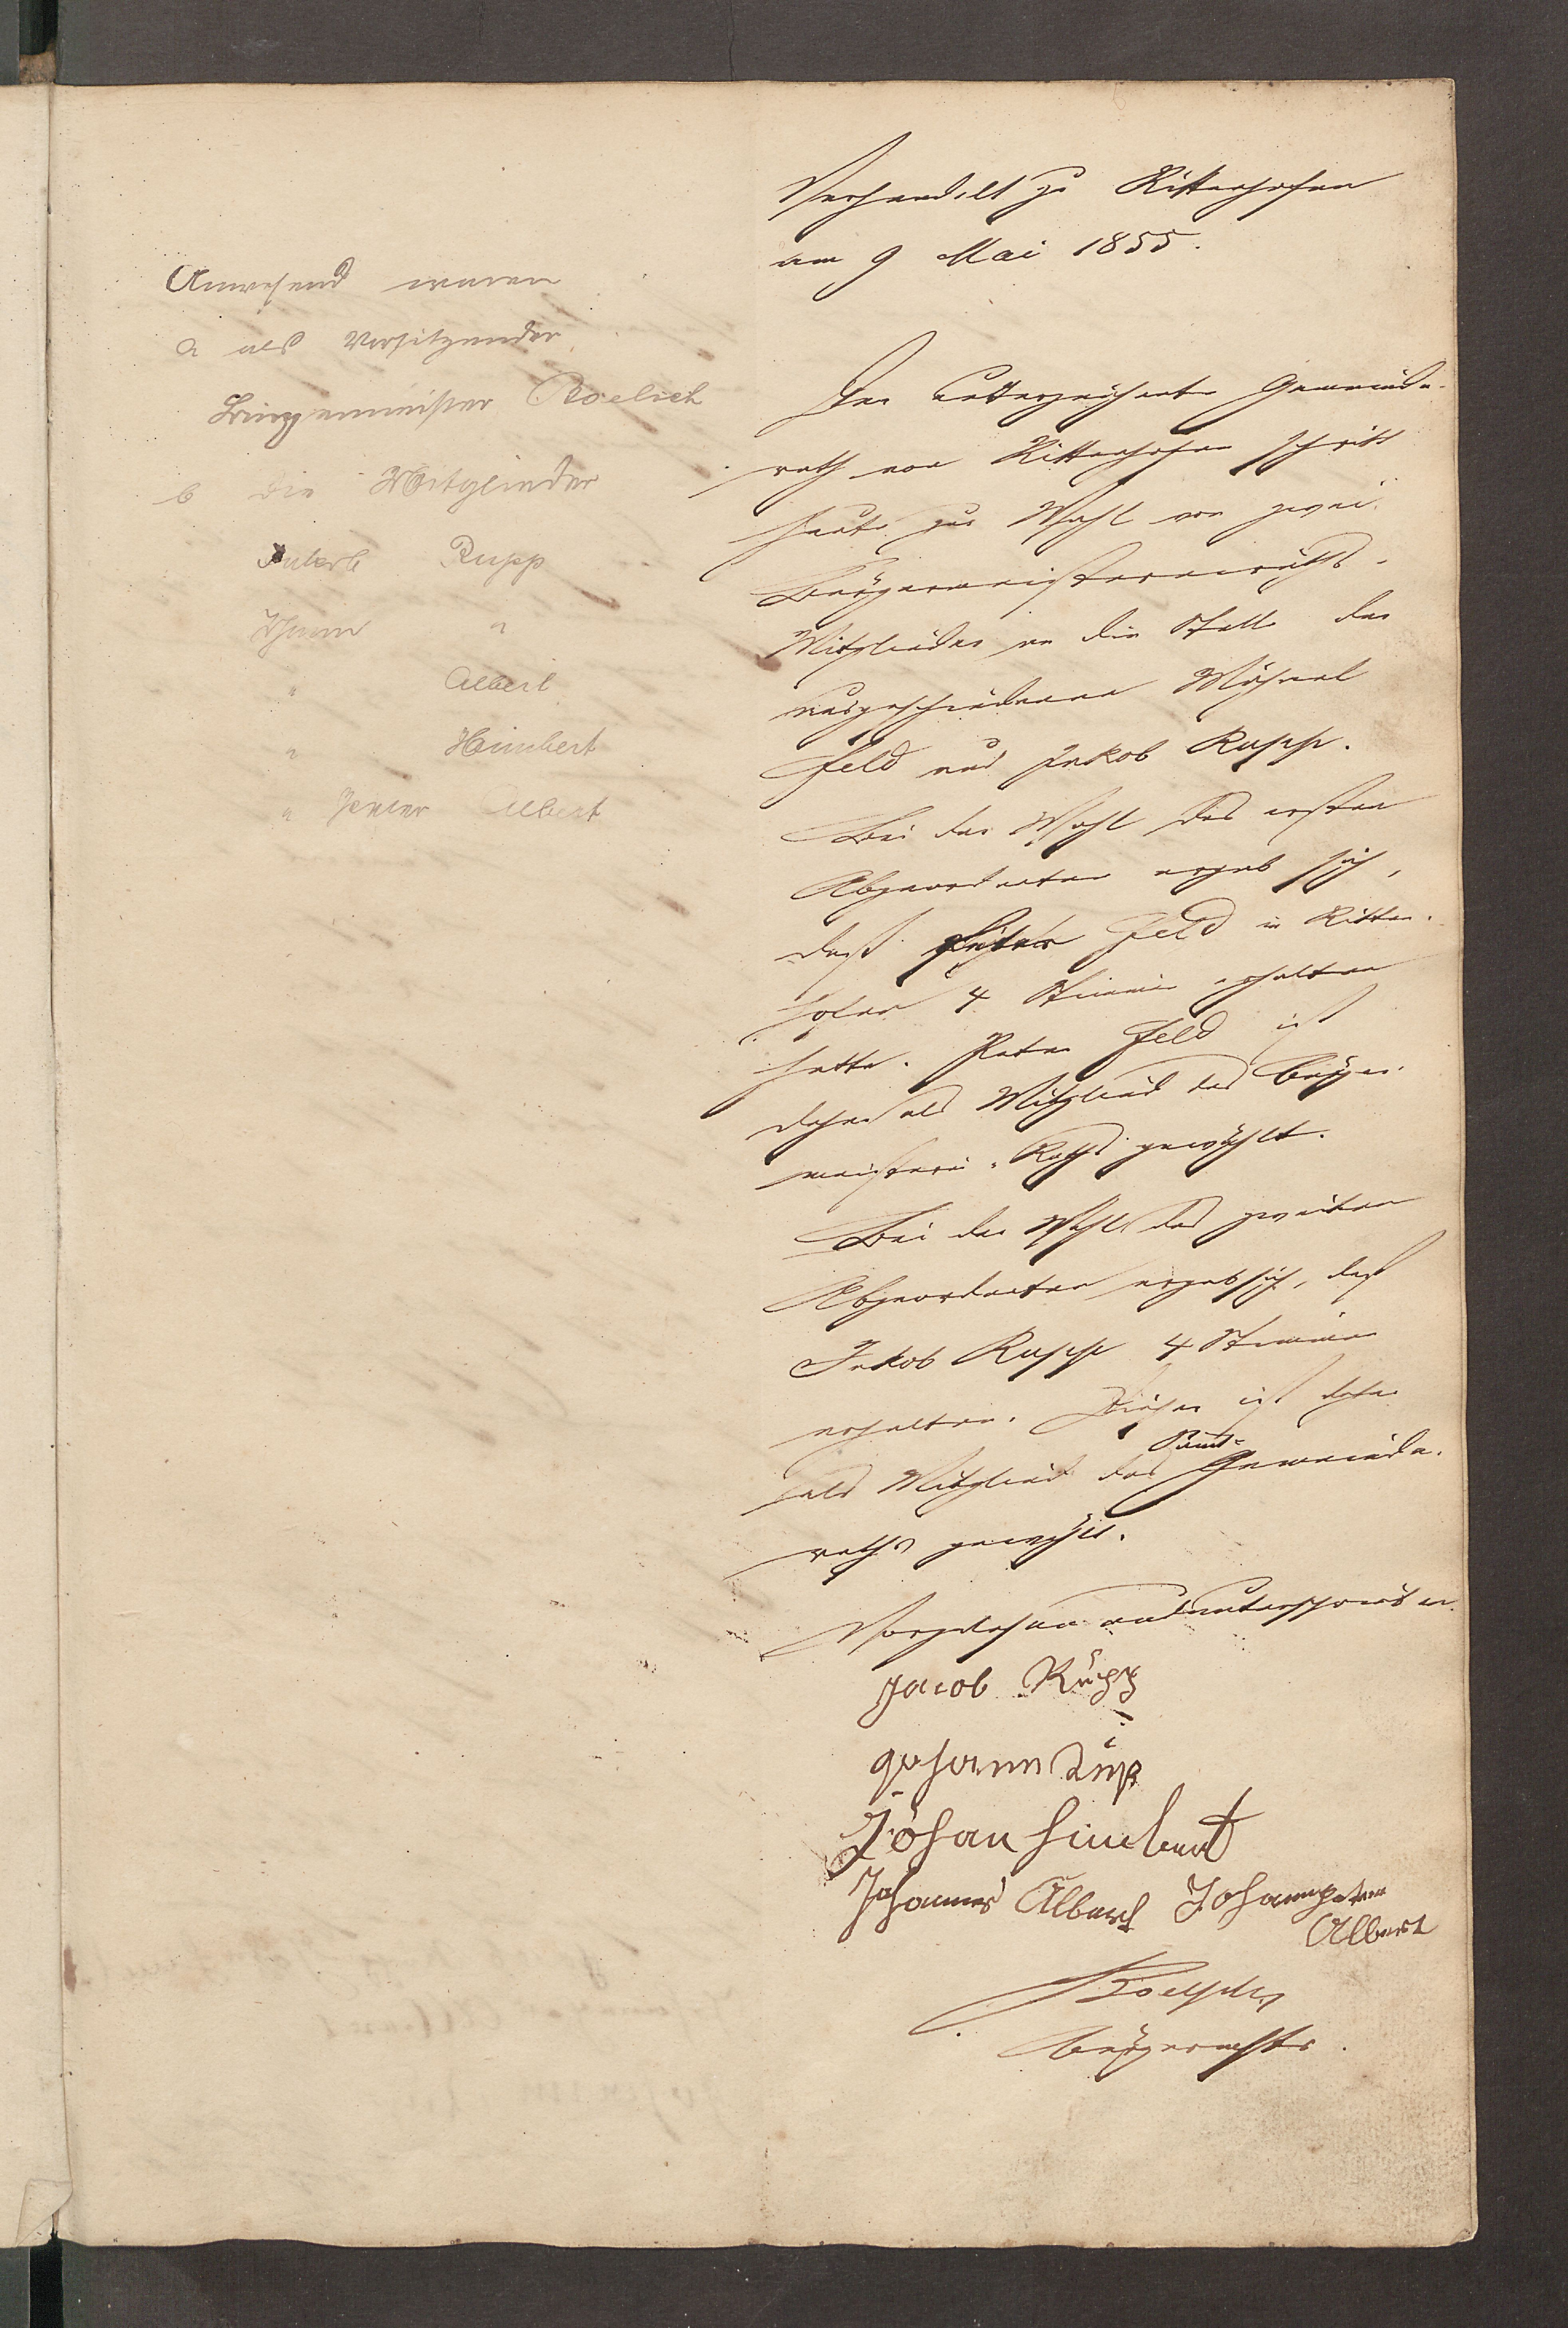 Verhandelt zu Rittenhofen
am 9 Mai 1855.
Anwesend waren
a als Vorsitzender
Bürgermeister Roelich
b die Mitglieder
Jakob Rupp
Johann "
" Albert
" Heimbert
" Peter Albert
Der unterzeichnete Gemeinde-
rath von Rittenhofen schritt
heute zur Wahl von zwei
Bürgermeistereiraths-
Mitglieder an die Stelle der
ausgeschiedenen Michael
Feld und Jakob Rupp.
Bei der Wahl des ersten
Abgeordneten ergab sich,
daß Peter Feld in Ritten-
hofen 4 Stimmen erhalten
hatte. Peter Feld ist
daher als Mitglied des Bürger-
meisterei-Raths gewählt.
Bei der Wahl des zweiten
Abgeordneten ergab sich, daß
Jakob Rupp 4 Stimmen
erhalten. Dieser ist daher
als Mitglied des Samt-Gemeinde-
raths gewählt.
Vorgelesen und unterschrieben.
Jacob Rupp
Johann Rup
Johan Himbert
Johannes Albert Johannpeter
Albert
Roelich
Bürgermstr.